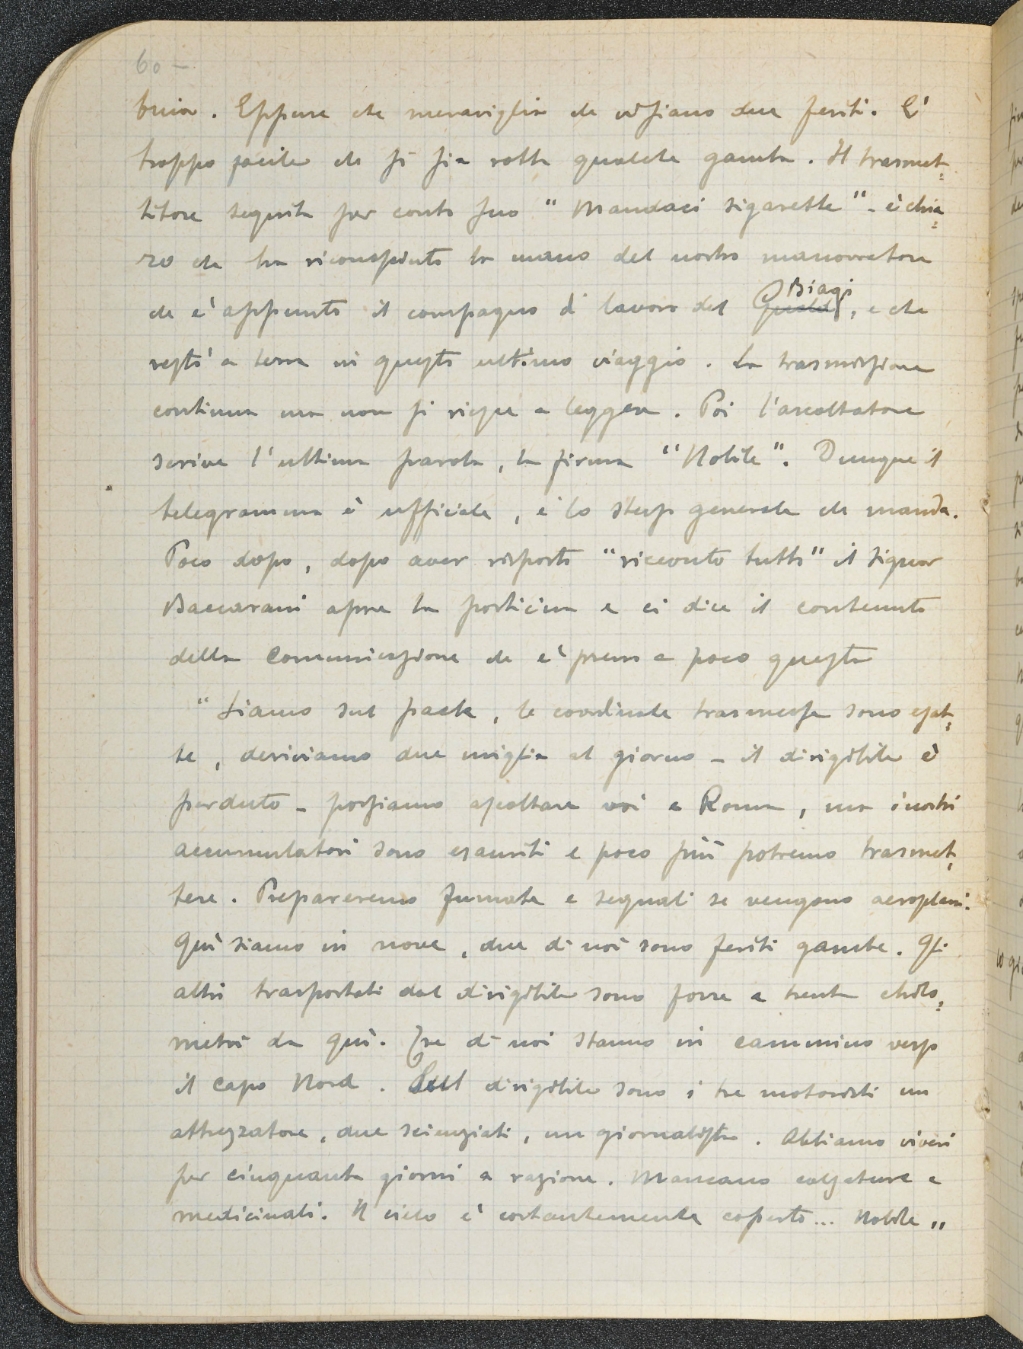 60 -
buio. Eppure che meraviglia che vi siano due feriti. E'
troppo facile che si sia rotta qualche gamba. Il trasmet=
titore seguita per conto suo "Mandaci sigarette" - è chia=
ro che ha riconosciuto la mano del nostro manovratore
che è appunto il compagno di lavoro del Biagi, e che
restò a terra in questo ultimo viaggio. La trasmissione
continua ma non si riesce a leggere. Poi l'ascoltatore
scrive l'ultima parola, la firma "Nobile". Dunque il
telegramma è ufficiale, è lo stesso generale che manda.
Poco dopo, dopo aver risposto "ricevuto tutto" il signor
Baccarani apre la porticina e ci dice il contenuto
della comunicazione che è presso a poco questa
"Siamo sul pack, le coordinate trasmesse sono esat=
te, deriviamo due miglia al giorno - il dirigibile è
perduto - possiamo ascoltare voi e Roma, ma i nostri
accumulatori sono esauriti e poco più potremo trasmet=
tere. Prepareremo fumate e segnali se vengono aeroplani.
Qui siamo in nove, due di noi sono feriti gambe. Gli
altri trasportati dal dirigibile sono forse a trenta chilo=
metri da qui. Tre di noi stanno in cammino verso
il capo Nord. Sul dirigibile sono i tre motoristi un
attrezzatore, due scienziati, un giornalista. Abbiamo viveri
per cinquanta giorni a razione. Mancano calzature e
medicinali. Il cielo è costantemente coperto... Nobile "